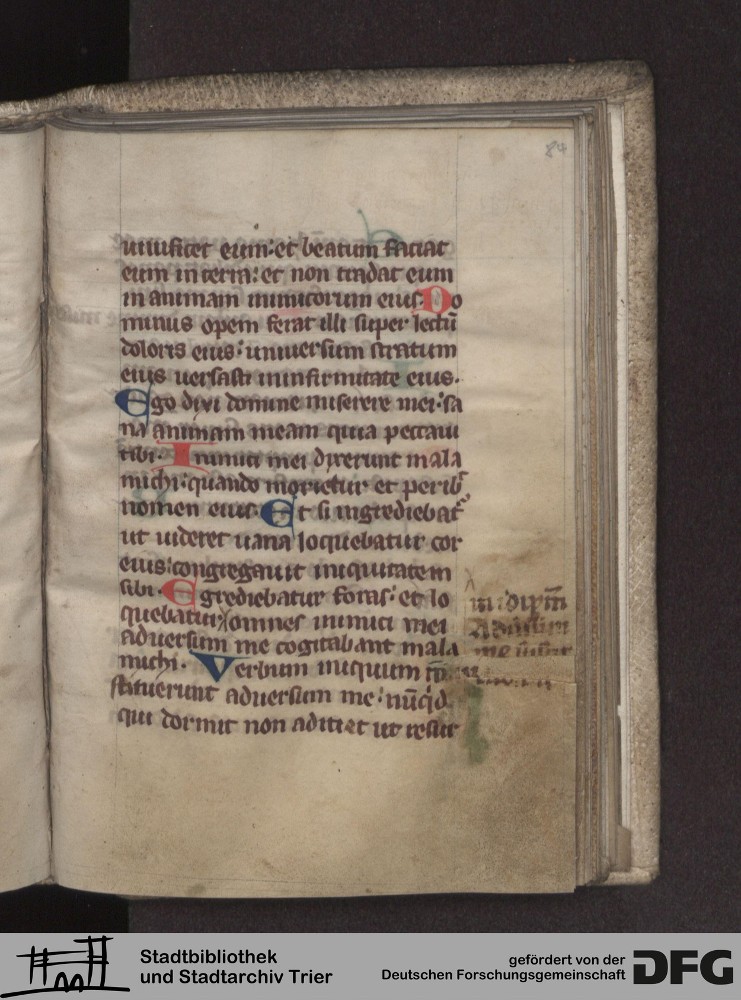 84
uiuificet eum: et beatum faciat
eum in terra: et non tradat eum
in animam inimicorum eius. Do
minus opem ferat illi super lectū
doloris eius: uniuersum stratum
eius uersasti in infirmitate eius.
Ego dixi domine miserere mei: sa
na animam meam quia peccaui
tibi. Inimici mei dixerunt mala
michi: quando morietur et perib
nomen eius. Et si ingrediebat
ut uideret uana loquebatur cor
eius: congregauit iniquitatem
sibi. Egrediebatur foras: et lo
quebatur omnes inimici mei
aduersum me cogitabant mala
michi. Verbum iniquum
stituerunt aduersum me: nūqd
qui dormit non adiciet ut resur
in idipm̄
Aduersum
me
Stadtbibliothek
und Stadtarchiv Trier
gefördert von der
Deutschen Forschungsgemeinschaft
DFG